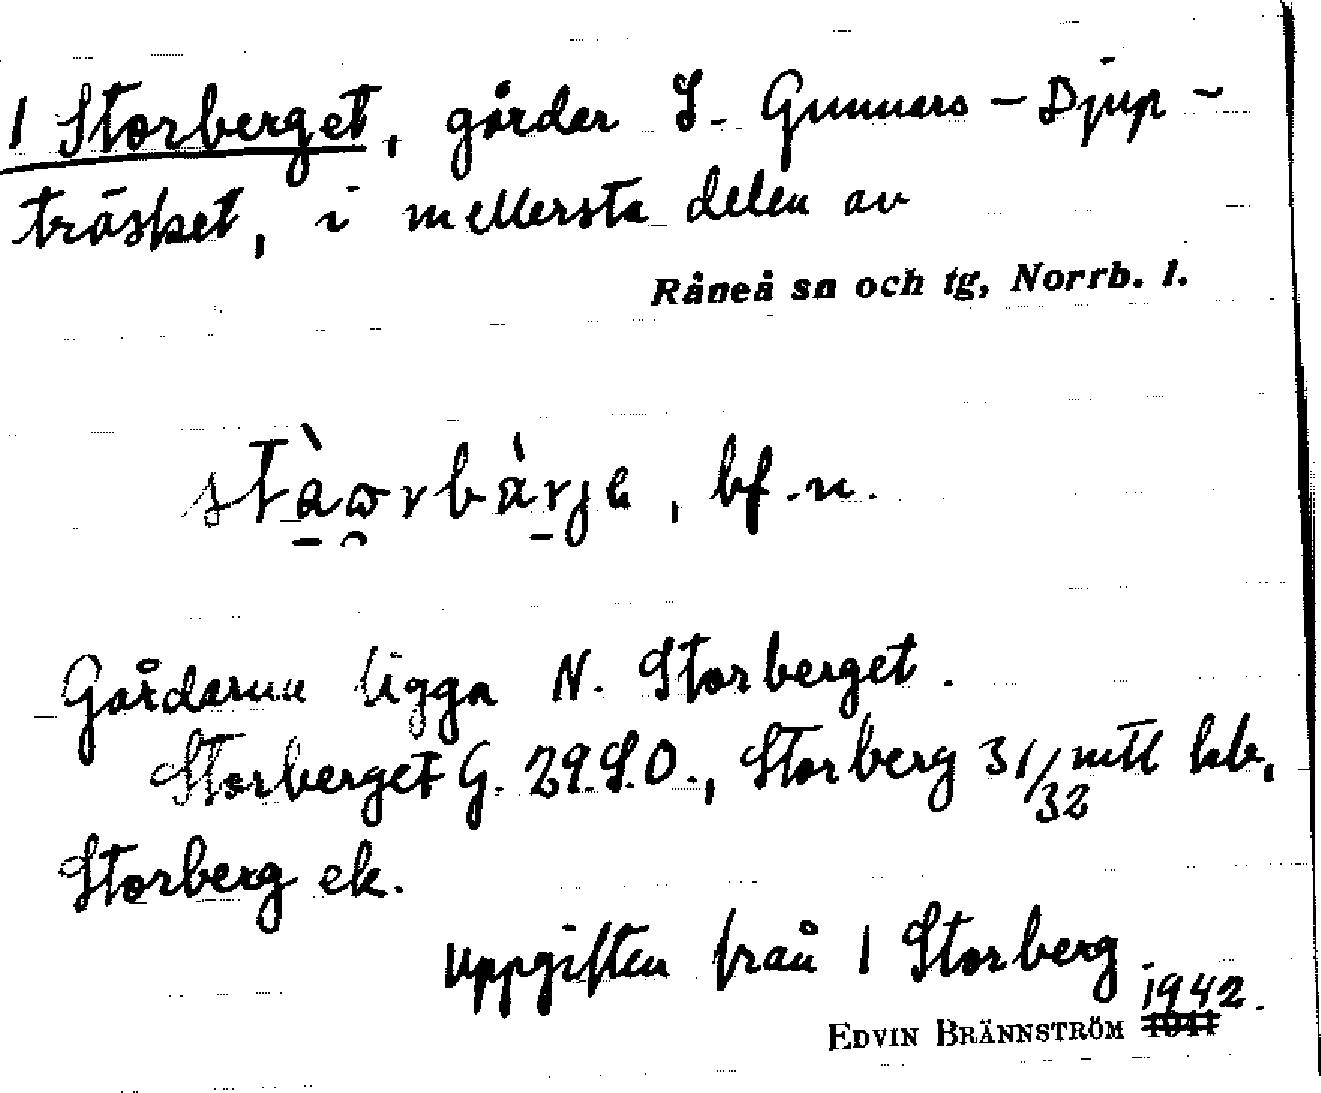 1 Storberget, gårdar S. Gunnars-Djup-
träsket, i mellersta delen av
Råneå sn och tg, Norrb. l.
stàọrbàrjɐ, bf.n.
Gårdarna ligga N. Storberget.
Storberget G. 29 S.O., Storberg 31/32 mtl hb,
Storberg ek.
Uppgiften från 1 Storberg
1942.
EDVIN BRÄNNSTRÖM 1941